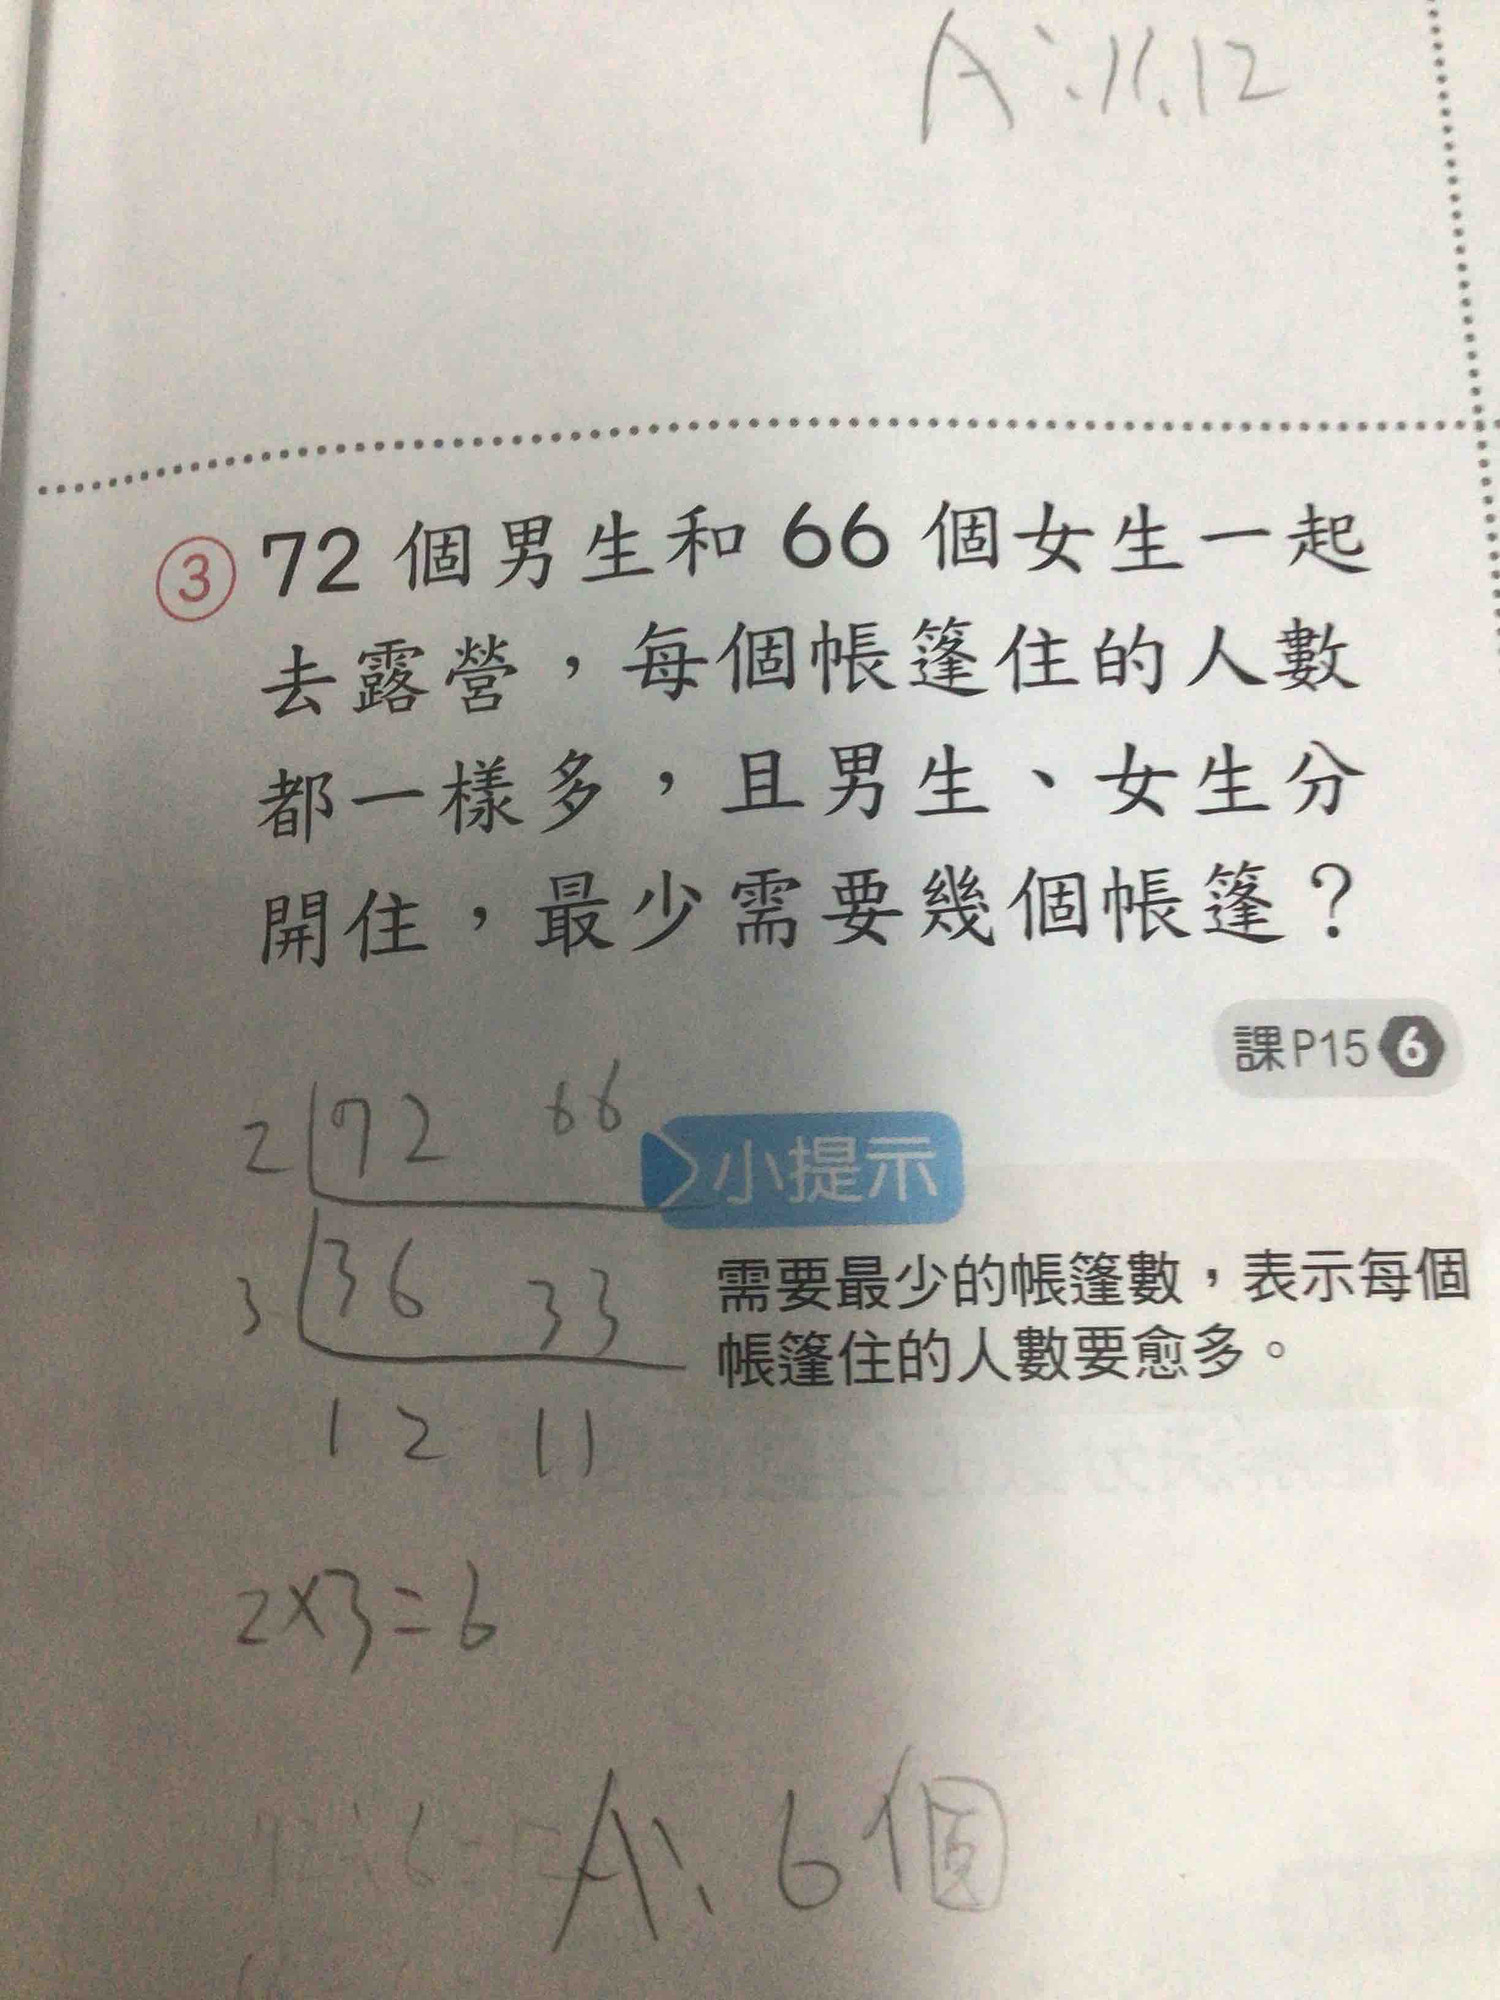 A:11.12
③ 72 個男生和 66 個女生一起
去露營，每個帳篷住的人數
都一樣多，且男生、女生分
開住，最少需要幾個帳篷？
課P15 6
2 72 66
小提示
3 36 33
需要最少的帳篷數，表示每個
帳篷住的人數要愈多。
12 11
2×3=6
A: 6個